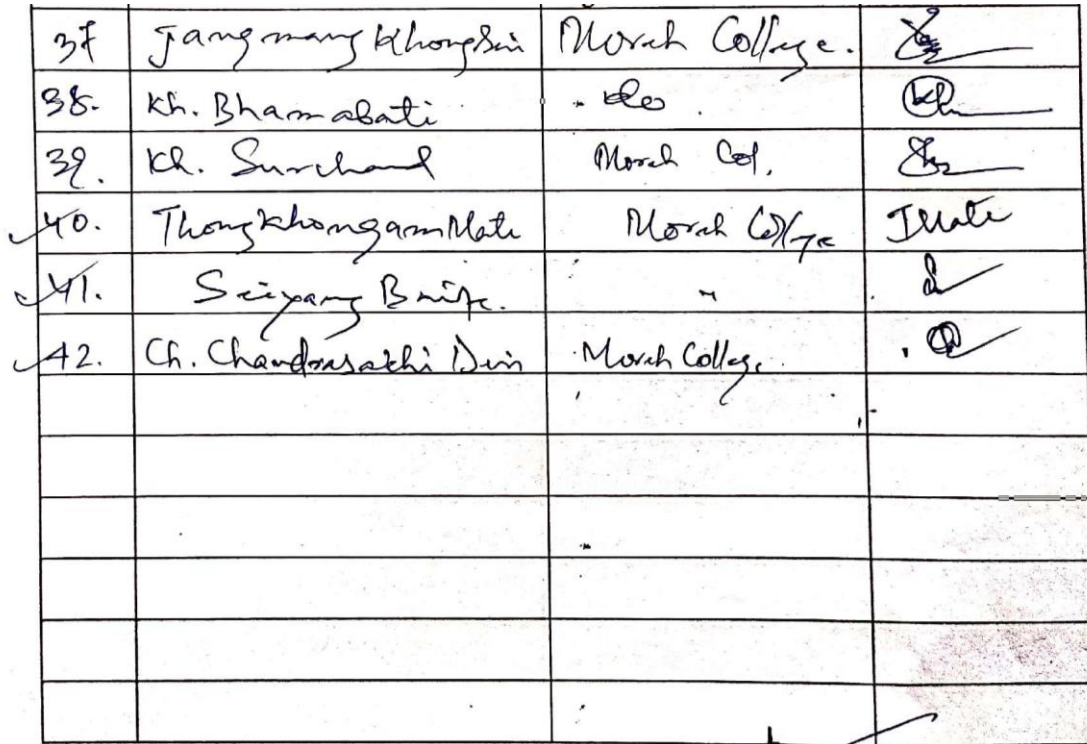 37 Jangmang Khongsai Moreh College.
38. Kh. Bhamabati do.
39. Kh. Surchand Moreh Col.
40. Thongkhongam Mate Moreh College TMate
41. Seiyang "
42. Ch. Chandrasakhi Devi Moreh College